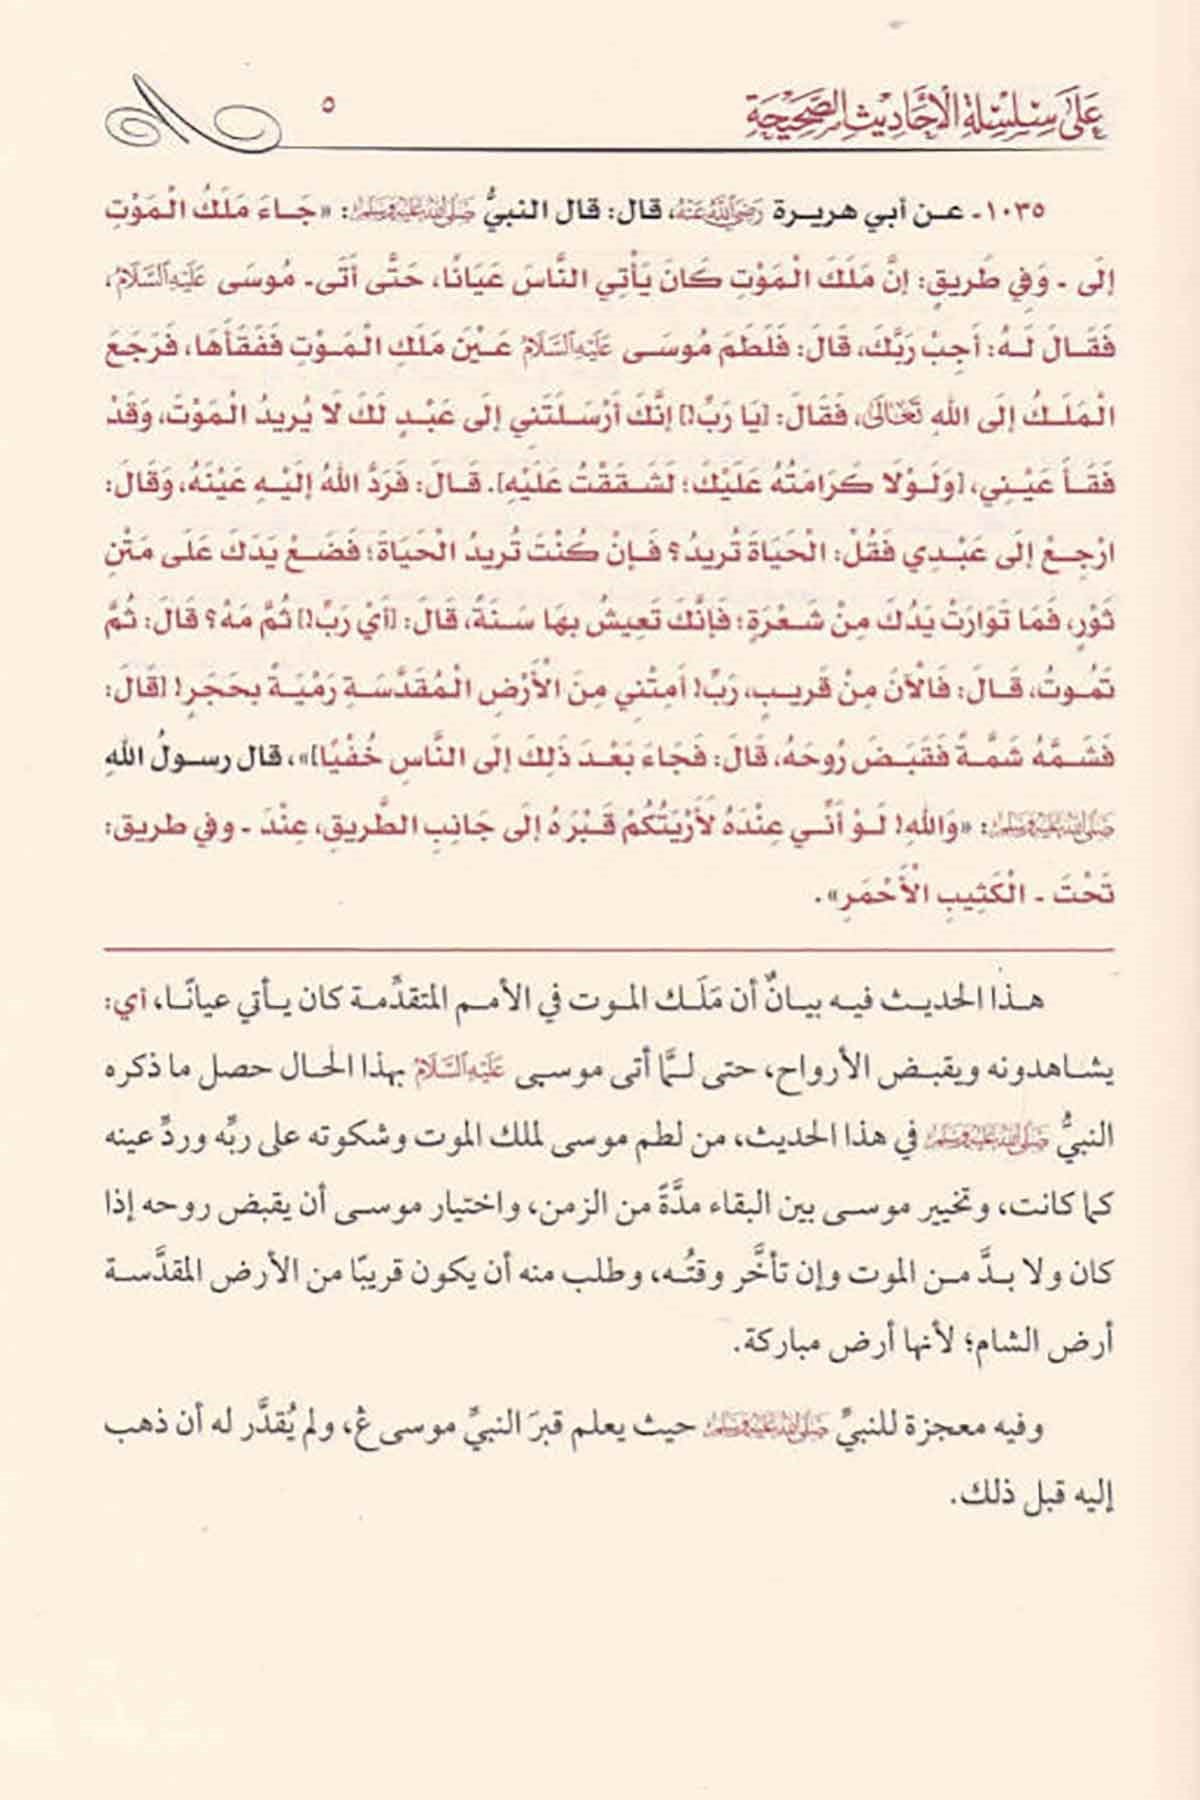 عَلَى سِلْسِلَةِ الْأَحَادِيثِ الصَّحِيْحَةِ ٥
١٠٣٥- عـن أبي هريـرة رَضِيَ اللَّهُ عَنْهُ، قال: قال النبيُّ صَلَّى اللَّهُ عَلَيْهِ وَسَلَّمَ: «جَـاءَ مَلَكُ الْمَوْتِ
إِلَى - وَفِي طَرِيقٍ: إِنَّ مَلَكَ الْمَوْتِ كَانَ يَأْتِي النَّاسَ عَيَانًا، حَتَّى أَتَى- مُوسَى عَلَيْهِ السَّلَامُ،
فَقَـالَ لَـهُ: أَجِبْ رَبَّكَ، قَالَ: فَلَطَمَ مُوسَـى عَلَيْهِ السَّلَامُ عَـيْنَ مَلَكِ الْمَـوْتِ فَفَقَأَهَا، فَرَجَعَ
الْمَلَـكُ إِلَى اللهِ تَعَالَى، فَقَالَ: [يَا رَبِّ!] إِنَّكَ أَرْسَـلْتَنِي إِلَى عَبْـدٍ لَكَ لَا يُرِيدُ الْمَوْتَ، وَقَدْ
فَقَـأَ عَيْـنِي، [وَلَـوْلَا كَرَامَتُهُ عَلَيْكَ؛ لَشَـقَقْتُ عَلَيْهِ]. قَـالَ: فَرَدَّ اللهُ إِلَيْـهِ عَيْنَهُ، وَقَالَ:
ارْجِـعْ إِلَى عَبْـدِي فَقُلْ: الْحَيَاةَ تُرِيدُ؟ فَـإِنْ كُنْتَ تُرِيدُ الْحَيَاةَ؛ فَضَـعْ يَدَكَ عَلَى مَتْنِ
ثَوْرٍ، فَمَا تَوَارَتْ يَدُكَ مِنْ شَـعْرَةٍ؛ فَإِنَّكَ تَعِيشُ بِهَا سَـنَةً، قَالَ: [أَيْ رَبِّ!] ثُمَّ مَهْ؟ قَالَ: ثُمَّ
تَمُوتُ، قَـالَ: فَالْآنَ مِنْ قَرِيـبٍ، رَبِّ! أَمِتْنِي مِنَ الْأَرْضِ الْمُقَدَّسَـةِ رَمْيَةً بِحَجَرٍ! [قَالَ:
فَشَـمَّهُ شَمَّـةً فَقَبَـضَ رُوحَهُ، قَالَ: فَجَاءَ بَعْـدَ ذَلِكَ إِلَى النَّاسِ خُفْيًا]»، قال رسـولُ اللهِ
صَلَّى اللَّهُ عَلَيْهِ وَسَلَّمَ: «وَاللهِ! لَـوْ أَنِّـي عِنْدَهُ لَأَرَيْتُكُمْ قَـبْرَهُ إِلَى جَانِبِ الطَّرِيقِ، عِنْدَ - وفي طريق:
تَحْتَ - الْكَثِيبِ الْأَحْمَرِ».
هـذا الحديـث فيـه بيـانٌ أن مَلَـك المـوت في الأمـم المتقدِّمـة كان يـأتي عيانًـا، أي:
يشـاهدونه ويقبـض الأرواح، حتى لـمَّا أتى موسـى عَلَيْهِ السَّلَامُ بهذا الحال حصل ما ذكره
النبيُّ صَلَّى اللَّهُ عَلَيْهِ وَسَلَّمَ في هذا الحديث، من لطم موسى لملك الموت وشكوته على ربِّه وردِّ عينه
كما كانت، وتخيير موسـى بين البقاء مدَّةً من الزمن، واختيار موسـى أن يقبض روحه إذا
كان ولا بـدَّ مـن الموت وإن تأخَّر وقتُـه، وطلب منه أن يكون قريبًا من الأرض المقدَّسـة
أرض الشام؛ لأنها أرض مباركة.
وفيه معجزة للنبيِّ صَلَّى اللَّهُ عَلَيْهِ وَسَلَّمَ حيث يعلم قبرَ النبيِّ موسى غ، ولم يُقدَّر له أن ذهب
إليه قبل ذلك.